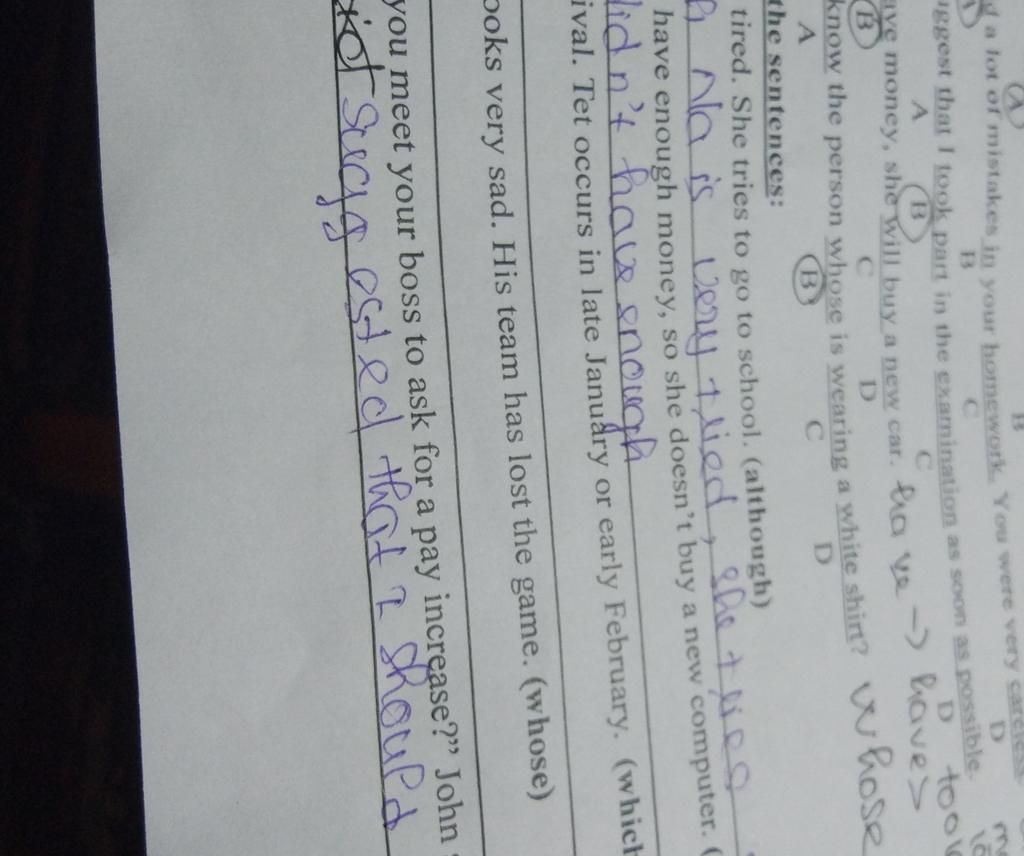 B
d a lot of mistakes in your homework. You were very careless
A B C D
uggest that I took part in the examination as soon as possible. took
A B C D
ave money, she will buy a new car. ha ve -> haves
B C D
know the person whose is wearing a white shirt? whose
A B C D
the sentences:
tired. She tries to go to school. (although)
h Na is very tried, she tries
have enough money, so she doesn't buy a new computer. (
did n't have enough
ival. Tet occurs in late January or early February. (which
ooks very sad. His team has lost the game. (whose)
you meet your boss to ask for a pay increase?” John
sugg ested that I should